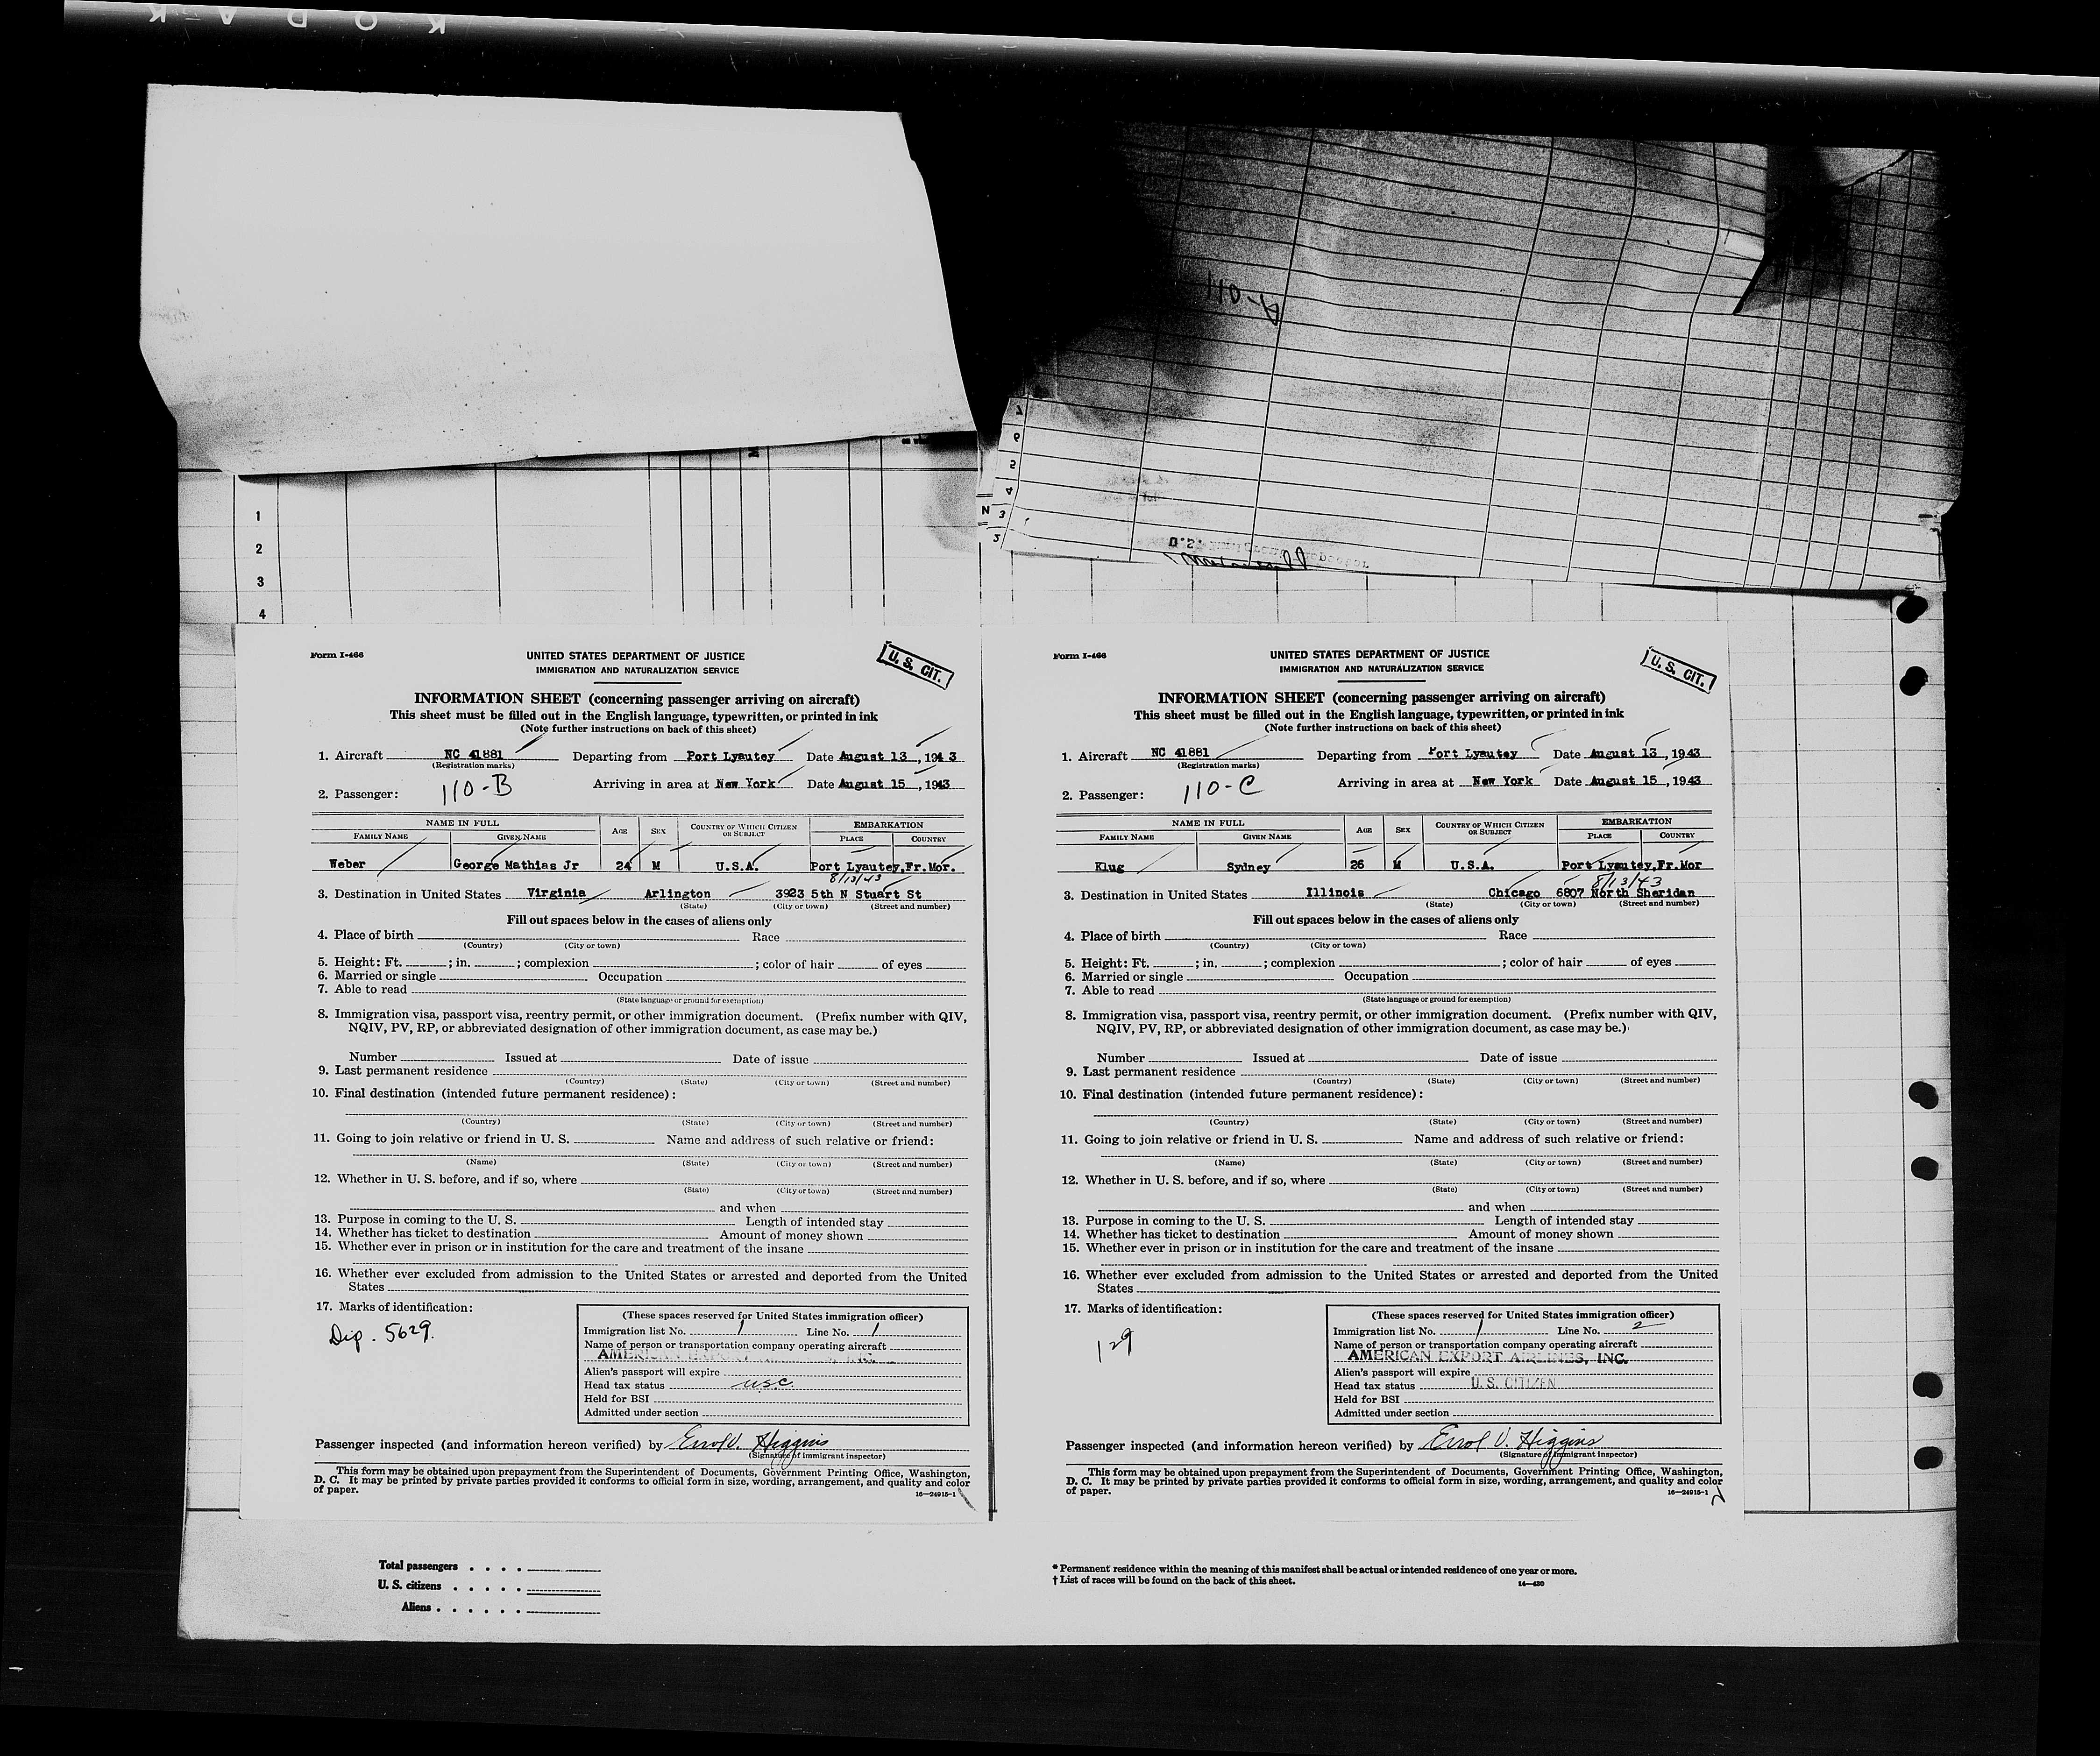 K O D A K
110-A
7
6
5
4
N 3
2
1
2
3
4
Form I-466
UNITED STATES DEPARTMENT OF JUSTICE
IMMIGRATION AND NATURALIZATION SERVICE
U. S. CIT.
INFORMATION SHEET (concerning passenger arriving on aircraft)
This sheet must be filled out in the English language, typewritten, or printed in ink
(Note further instructions on back of this sheet)
1. Aircraft NC 41881 Departing from Port Lyautey Date August 13, 1943
(Registration marks)
Arriving in area at New York Date August 15, 1943
2. Passenger: 110-B
NAME IN FULL AGE SEX COUNTRY OF WHICH CITIZEN OR SUBJECT EMBARKATION
FAMILY NAME GIVEN NAME PLACE COUNTRY
Weber George Mathias Jr 24 M U.S.A. Port Lyautey, Fr. Mor.
8/13/43
3. Destination in United States Virginia Arlington 3923 5th N Stuart St
(State) (City or town) (Street and number)
Fill out spaces below in the cases of aliens only
4. Place of birth Race
(Country) (City or town)
5. Height: Ft. ; in. ; complexion ; color of hair of eyes
6. Married or single Occupation
7. Able to read
(State language or ground for exemption)
8. Immigration visa, passport visa, reentry permit, or other immigration document. (Prefix number with QIV,
NQIV, PV, RP, or abbreviated designation of other immigration document, as case may be.)
Number Issued at Date of issue
9. Last permanent residence
(Country) (State) (City or town) (Street and number)
10. Final destination (intended future permanent residence):
(Country) (State) (City or town) (Street and number)
11. Going to join relative or friend in U. S. Name and address of such relative or friend:
(Name) (State) (City or town) (Street and number)
12. Whether in U. S. before, and if so, where
(State) (City or town) (Street and number)
and when
13. Purpose in coming to the U. S. Length of intended stay
14. Whether has ticket to destination Amount of money shown
15. Whether ever in prison or in institution for the care and treatment of the insane
16. Whether ever excluded from admission to the United States or arrested and deported from the United
States
17. Marks of identification:
Dip. 5629.
(These spaces reserved for United States immigration officer)
Immigration list No. 1 Line No. 1
Name of person or transportation company operating aircraft
AMERICAN EXPORT
Alien's passport will expire
Head tax status usc
Held for BSI
Admitted under section
Passenger inspected (and information hereon verified) by Errol V. Higgins
(Signature of immigrant inspector)
This form may be obtained upon prepayment from the Superintendent of Documents, Government Printing Office, Washington,
D. C. It may be printed by private parties provided it conforms to official form in size, wording, arrangement, and quality and color
of paper.
16—24915-1
Form I-466
UNITED STATES DEPARTMENT OF JUSTICE
IMMIGRATION AND NATURALIZATION SERVICE
U. S. CIT.
INFORMATION SHEET (concerning passenger arriving on aircraft)
This sheet must be filled out in the English language, typewritten, or printed in ink
(Note further instructions on back of this sheet)
1. Aircraft NC 41881 Departing from Port Lyautey Date August 13, 1943
(Registration marks)
Arriving in area at New York Date August 15, 1943
2. Passenger: 110-C
NAME IN FULL AGE SEX COUNTRY OF WHICH CITIZEN OR SUBJECT EMBARKATION
FAMILY NAME GIVEN NAME PLACE COUNTRY
Klug Sydney 26 M U.S.A. Port Lyautey, Fr. Mor
8/13/43
3. Destination in United States Illinois Chicago 6807 North Sheridan
(State) (City or town) (Street and number)
Fill out spaces below in the cases of aliens only
4. Place of birth Race
(Country) (City or town)
5. Height: Ft. ; in. ; complexion ; color of hair of eyes
6. Married or single Occupation
7. Able to read
(State language or ground for exemption)
8. Immigration visa, passport visa, reentry permit, or other immigration document. (Prefix number with QIV,
NQIV, PV, RP, or abbreviated designation of other immigration document, as case may be.)
Number Issued at Date of issue
9. Last permanent residence
(Country) (State) (City or town) (Street and number)
10. Final destination (intended future permanent residence):
(Country) (State) (City or town) (Street and number)
11. Going to join relative or friend in U. S. Name and address of such relative or friend:
(Name) (State) (City or town) (Street and number)
12. Whether in U. S. before, and if so, where
(State) (City or town) (Street and number)
and when
13. Purpose in coming to the U. S. Length of intended stay
14. Whether has ticket to destination Amount of money shown
15. Whether ever in prison or in institution for the care and treatment of the insane
16. Whether ever excluded from admission to the United States or arrested and deported from the United
States
17. Marks of identification:
129
(These spaces reserved for United States immigration officer)
Immigration list No. 1 Line No. 2
Name of person or transportation company operating aircraft
AMERICAN EXPORT AIRLINES, INC.
Alien's passport will expire
Head tax status U. S. CITIZEN
Held for BSI
Admitted under section
Passenger inspected (and information hereon verified) by Errol V. Higgins
(Signature of immigrant inspector)
This form may be obtained upon prepayment from the Superintendent of Documents, Government Printing Office, Washington,
D. C. It may be printed by private parties provided it conforms to official form in size, wording, arrangement, and quality and color
of paper.
16—24915-1
Total passengers . . . .
U. S. citizens . . . . .
Aliens . . . . . .
* Permanent residence within the meaning of this manifest shall be actual or intended residence of one year or more.
† List of races will be found on the back of this sheet.
14—430